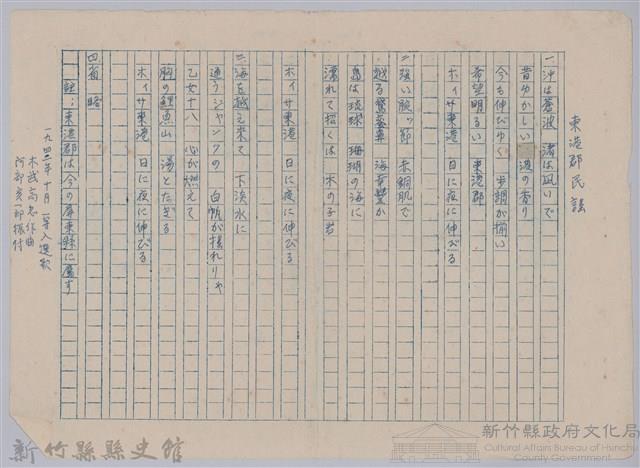 東港郡民謡
一沖は蒼波 渚は凪いで
昔ゆかしい 浪の香り
今も伸びゆく 歩調が揃い
希望明るい 東港郡
ホイサ東港 日に夜に伸びる
二強い腕っ節 赤銅肌で
越る鰲蓬莱 海幸豊か
島は琉球 珊瑚の海に
濡れて招くは 木の子岩
ホイサ東港 日に夜に伸びる
三海を越え来て 下淡水に
通うジャンクの 白帆が揺れりゃ
乙女十八 心が燃えて
胸の鯉魚山 湯とたぎる
ホイサ東港 日に夜に伸びる
四省略
註:東港郡は今の屏東縣に属す
一九四一年十月一等入選歌
木武高志作曲
阿部亥一郎振付
新竹縣縣史館
新竹縣政府文化局
Cultural Affairs Bureau of Hsinchu
County Government